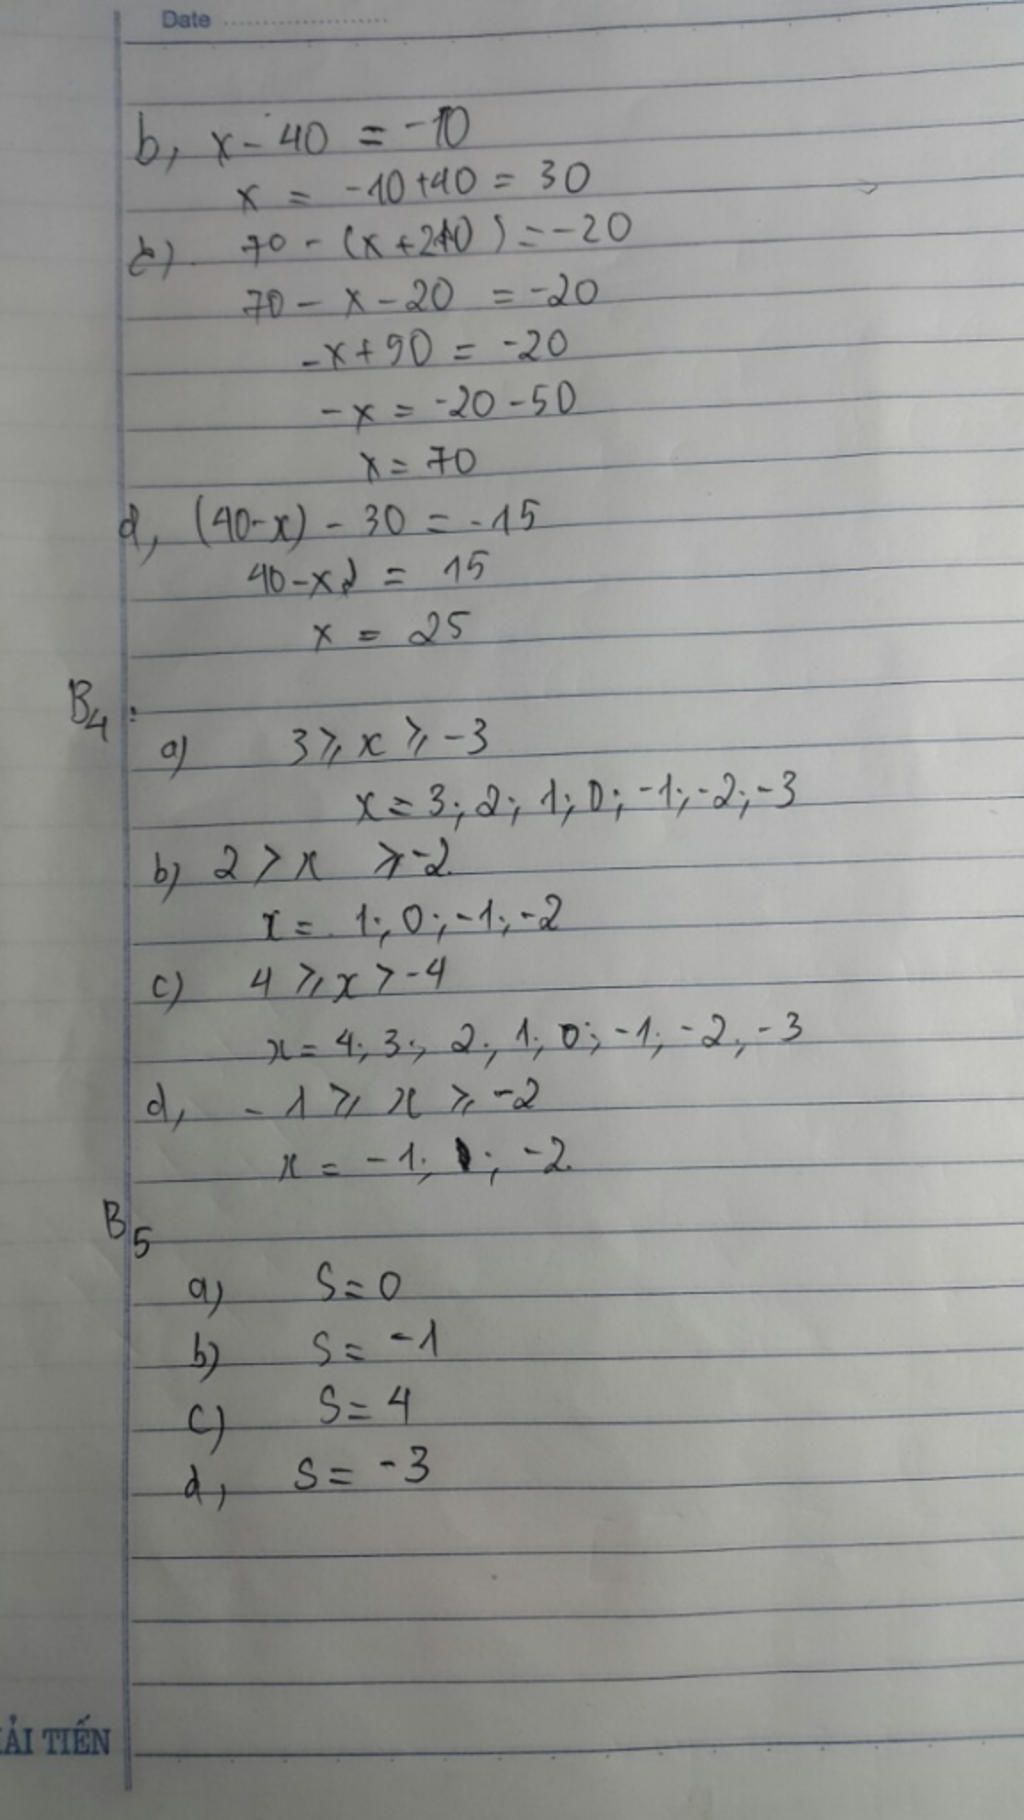 Date
b, x - 40 = -10
x = -10+40 = 30
c) 70 - (x+20) = -20
70 - x - 20 = -20
-x+50 = -20
-x = -20 - 50
x = 70
d, (40-x) - 30 = -15
40-x = 15
x = 25
B4:
a) 3 ⩾ x ⩾ -3
x = 3; 2; 1; 0; -1; -2; -3
b) 2 > x ⩾ -2
x = 1; 0; -1; -2
c) 4 ⩾ x > -4
x = 4; 3; 2; 1; 0; -1; -2; -3
d, -1 ⩾ x ⩾ -2
x = -1; -2
B5
a) S = 0
b) S = -1
c) S = 4
d, S = -3
ẢI TIẾN